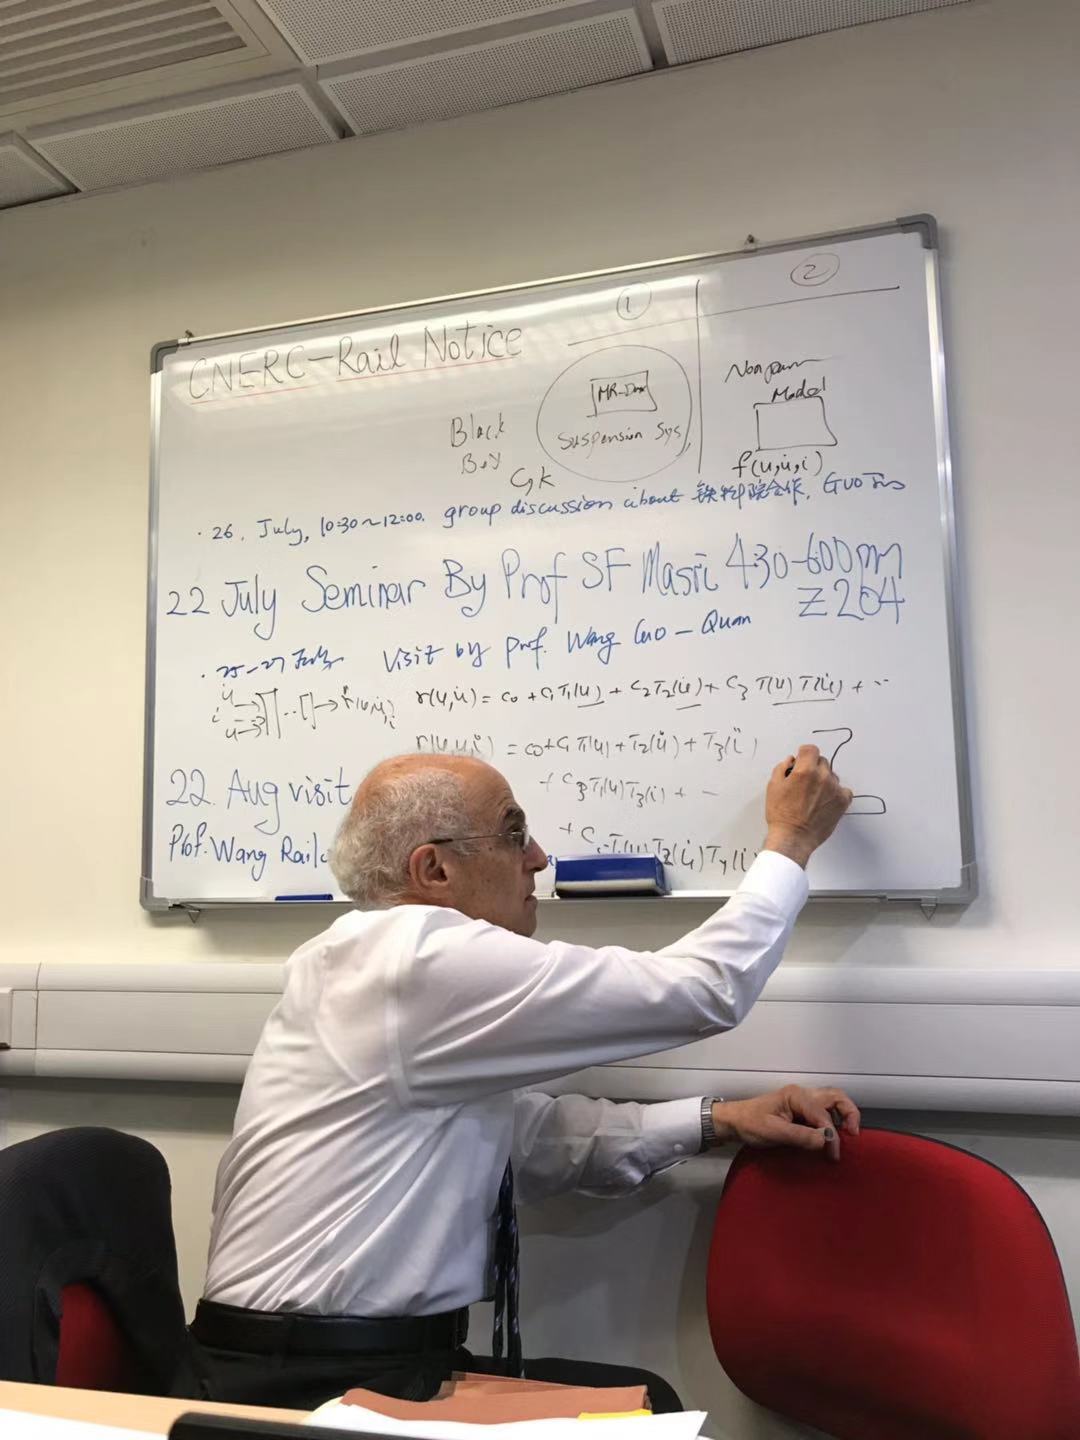 CNERC-Rail Notice
①
②
MR-Dam
Suspension Sys
Black
Box
C, k
Nonparam
Model
f(u,u̇,i)
· 26, July, 10:30~12:00. group discussion about 铁科院合作, Guo
22 July Seminar By Prof SF Masri 430-600pm
Z204
· 25-27 July Visit by Prof. Wang Guo-Quan
r(u,u̇) = c₀ + c₁T₁(u) + c₂T₂(u̇) + c₃ T(u) T(u̇) + ...
= c₀ + c₁ T₁(u) + T₂(u̇) + T₃(i)
+ c₃T₁(u)T₃(i) + ...
22. Aug visit
Prof. Wang